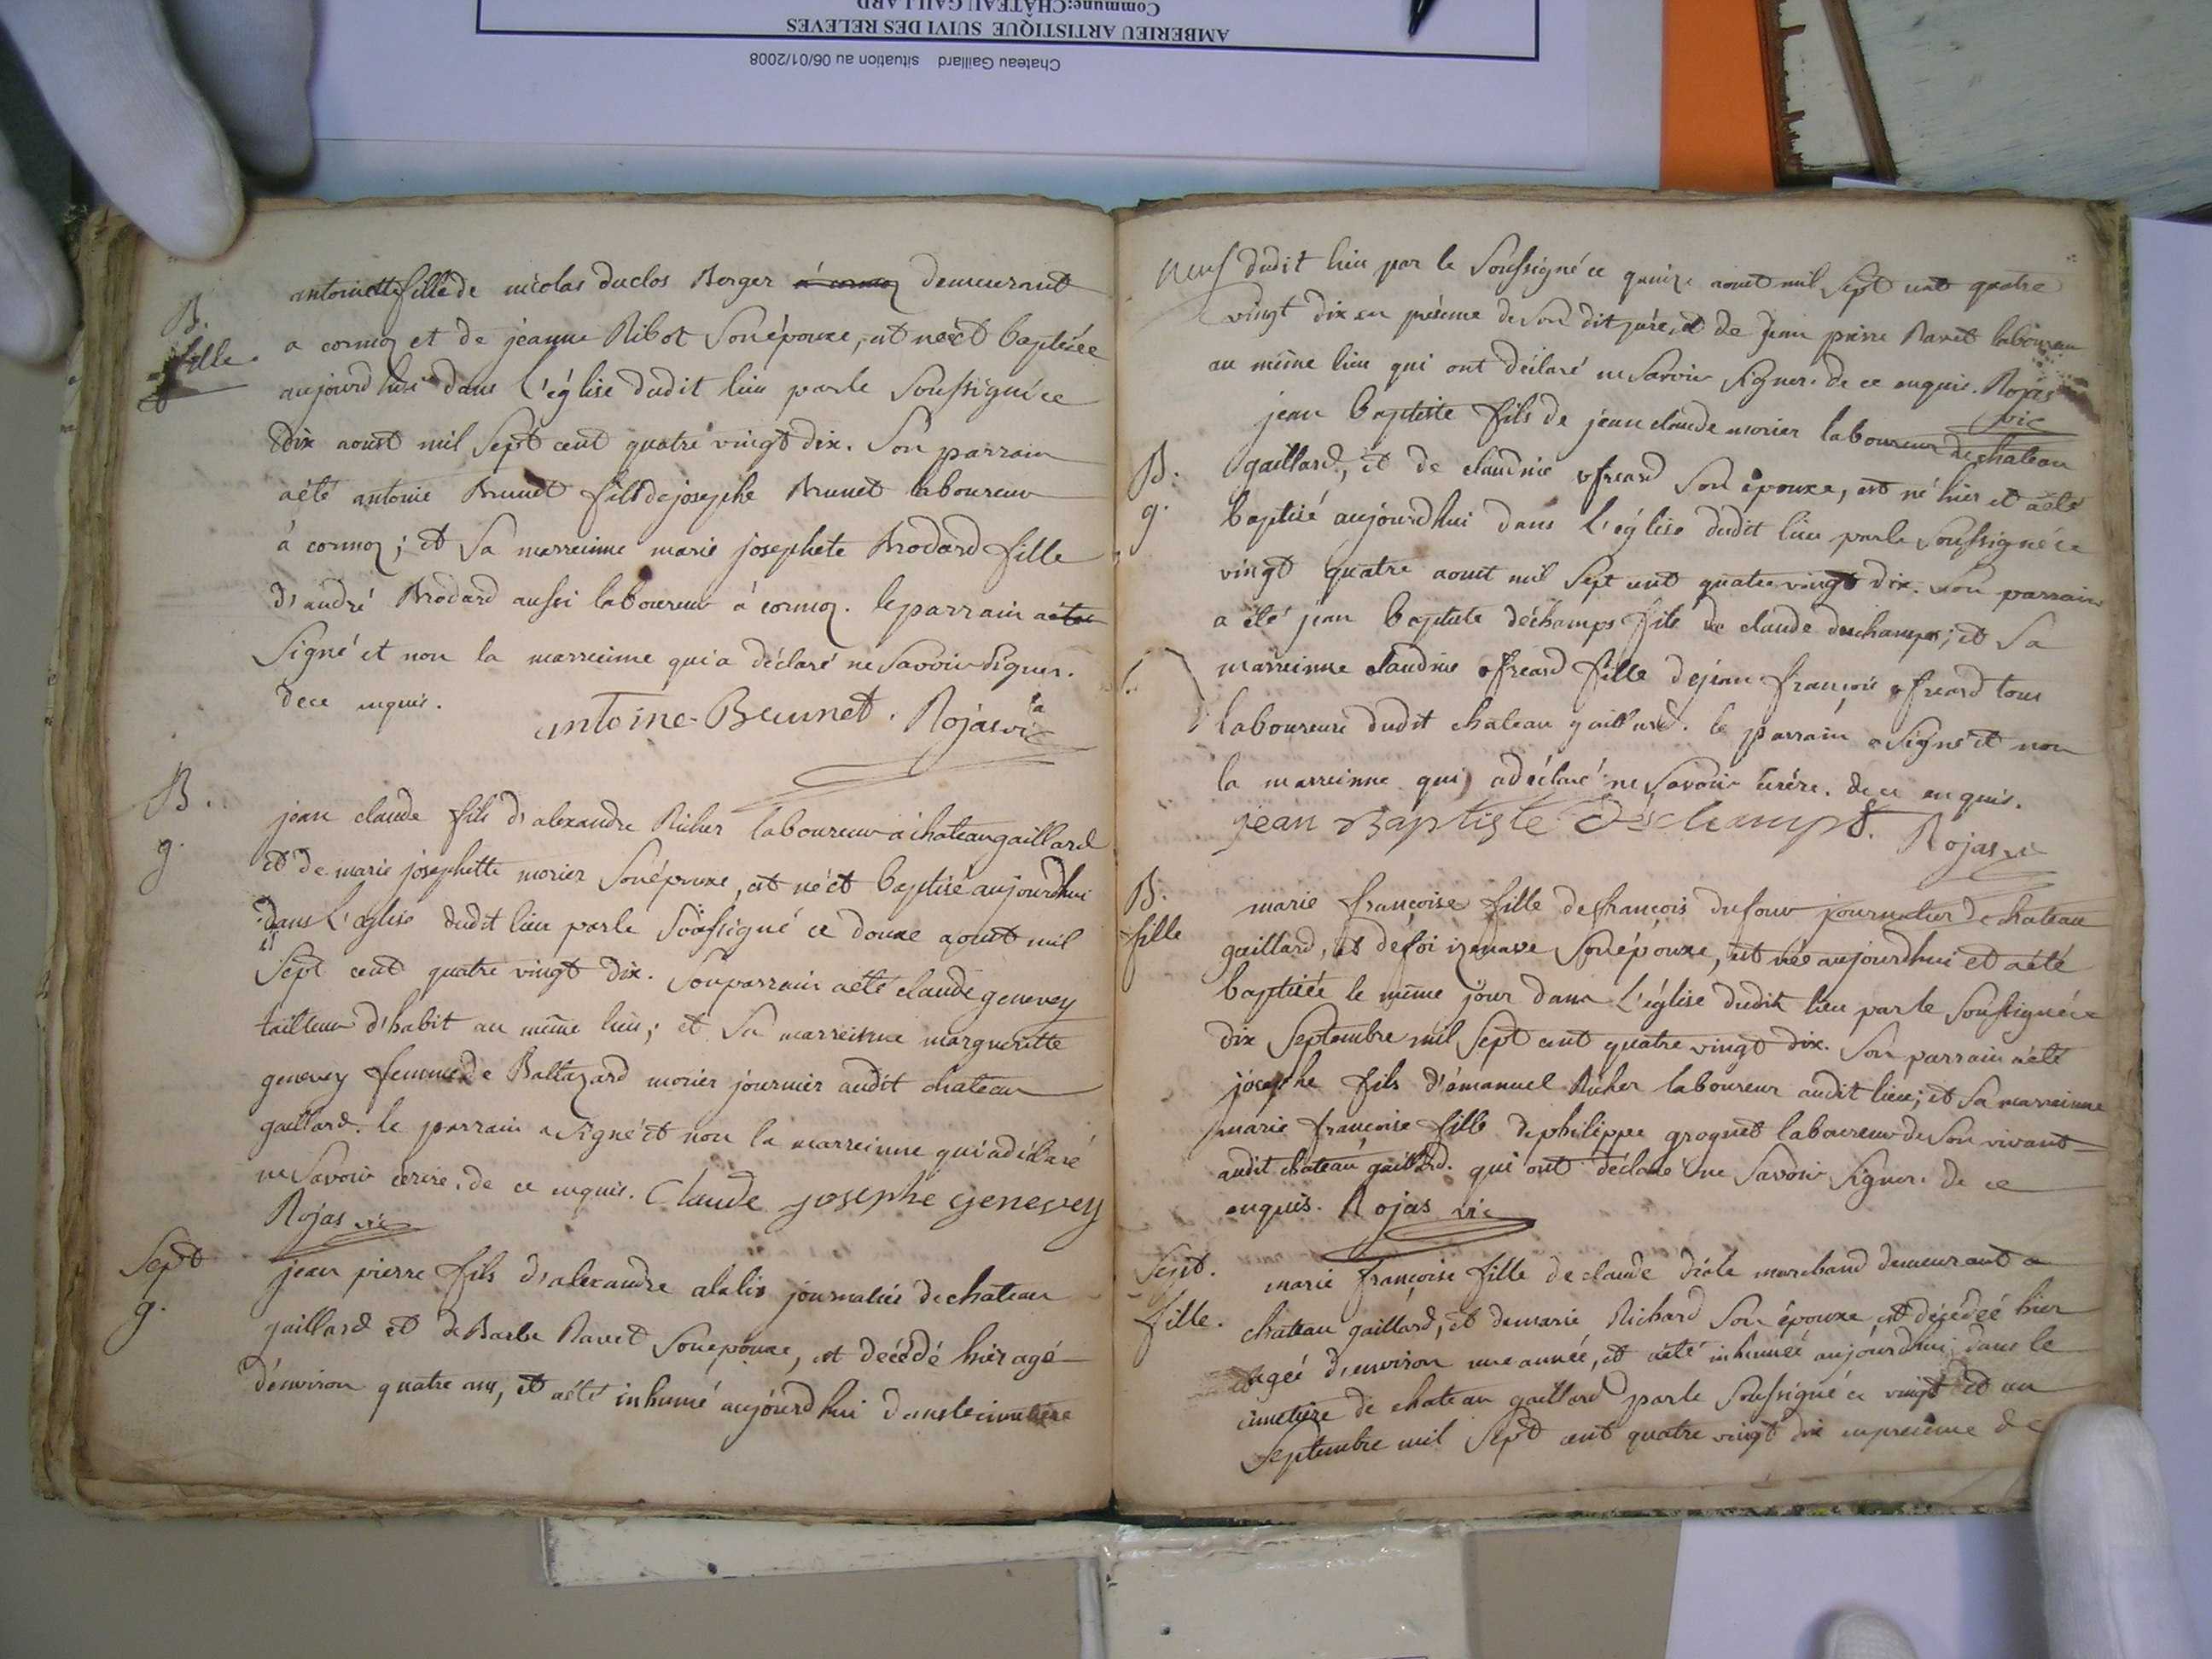 AMBERIEU ARTISTIQUE SUIVI DES RELEVES
Commune:CHÂTEAU GAILLARD
Chateau Gaillard situation au 06/01/2008
B.
fille
antoinette fille de nicolas duclos Berger à cormoz demeurant
a cormoz et de jeanne Ribot son épouxe, est née et baptisée
aujourdhui dans l'église dudit lieu par le soussigné ce
dix aoust mil sept cent quatre vingt dix. Son parrain
a été antoine Brunet fils de josephe Brunet laboureur
à cormoz; et sa marreinne marie josephete Brodard fille
d'andré Brodard aussi laboureur à cormoz. le parrain a
signé et non la marreinne qui a déclaré ne savoir signer.
de ce enquis.
antoine Brunet. Rojas vic
B.
g.
jean claude fils d'alexandre Richer laboureur a chateaugaillard
et de marie josephette morier son épouxe, est né et baptisé aujourdhui
dans l'église dudit lieu par le soussigné ce douxe aoust mil
sept cent quatre vingt dix. Son parrain a été claude genevey
tailleur d'habit au même lieu; et sa marreinne margueritte
genevey femme de Baltazard morier journier audit chateau
gaillard. le parrain a signé et non la marreinne qui a déclaré
ne savoir écrire. de ce enquis. Claude josephe genevey
Rojas vic
Sept
g.
jean pierre fils d'alexandre alalis journalier de chateau
gaillard et de Barbe Ravet son épouxe, est décédé hier agé
d'environ quatre ans, et a été inhumé aujourdhui dans le cimetière
neuf dudit lieu par le soussigné ce quinze aoust mil sept cent quatre
vingt dix en présence de son dit père, et de jean pierre Ravet laboureur
au même lieu qui ont déclaré ne savoir signer. de ce enquis. Rojas
vic
B.
g.
jean baptiste fils de jean claude morier laboureur de chateau
gaillard, et de claudine ofreard son épouxe, est né hier et a été
baptisé aujourdhui dans l'église dudit lieu par le soussigné ce
vingt quatre aoust mil sept cent quatre vingt dix. Son parrain
a été jean baptiste déchamps fils de claude deschamps; et sa
marreinne claudine ofreard fille de jean françois ofreard tous
laboureurs dudit chateau gaillard. le parrain a signé et non
la marreinne qui a déclaré ne savoir écrire. de ce enquis.
jean Baptiste Déschamps. Rojas vic
B.
fille
marie françoise fille de françois dufour journalier de chateau
gaillard, et de foi izenave son épouxe, est née aujourdhui et a été
baptisée le même jour dans l'église dudit lieu par le soussigné ce
dix septembre mil sept cent quatre vingt dix. Son parrain a été
josephe fils d'émanuel Richer laboureur audit lieu; et sa marreinne
marie françoise fille de philippe grognet laboureur de son vivant
audit chateau gaillard. qui ont déclaré ne savoir signer. de ce
enquis. Rojas vic
Sept.
fille.
marie françoise fille de claude marchand demeurant a
chateau gaillard, et de marie Richard son épouxe est décédée hier
agée d'environ une année, et a été inhumée aujourdhui dans le
cimetière de chateau gaillard par le soussigné ce vingt et un
septembre mil sept cent quatre vingt dix en présence de